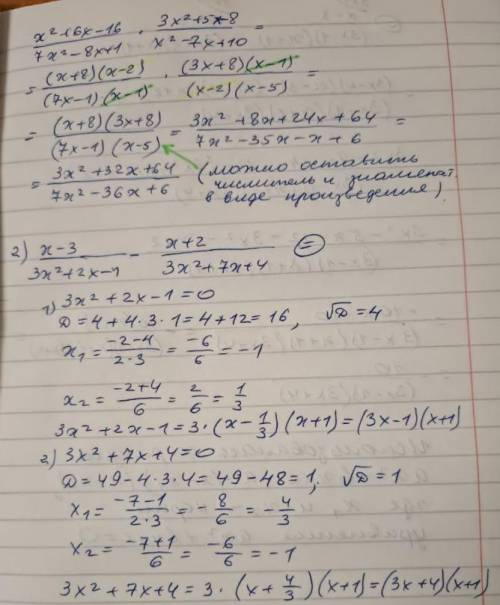 x²+6x-16 / 7x²-8x+1 · 3x²+5x-8 / x²-7x+10 =
= (x+8)(x-2) / (7x-1)(x-1) · (3x+8)(x-1) / (x-2)(x-5) =
= (x+8)(3x+8) / (7x-1)(x-5) = 3x²+8x+24x+64 / 7x²-35x-x+6 =
= 3x²+32x+64 / 7x²-36x+6 (можно оставить
числитель и знаменат.
в виде произведения).
2) x-3 / 3x²+2x-1 - x+2 / 3x²+7x+4 =
1) 3x²+2x-1=0
D=4+4·3·1=4+12=16, √D=4
x₁= -2-4 / 2·3 = -6/6 = -1
x₂= -2+4 / 6 = 2/6 = 1/3
3x²+2x-1=3·(x-1/3)(x+1)=(3x-1)(x+1)
2) 3x²+7x+4=0
D=49-4·3·4=49-48=1; √D=1
x₁= -7-1 / 2·3 = -8/6 = -4/3
x₂= -7+1 / 6 = -6/6 = -1
3x²+7x+4=3·(x+4/3)(x+1)=(3x+4)(x+1)